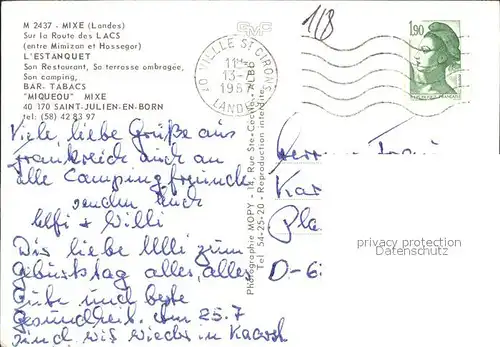 M 2437 - MIXE (Landes)
Sur la Route des LACS
(entre Mimizan et Hossegor)
L'ESTANQUET
Son Restaurant, Sa terrasse ombragée,
Son camping,
BAR- TABACS
"MIQUEOU" MIXE
40 170 SAINT-JULIEN-EN-BORN
tel: (58) 42 83 97
Viele liebe Grüße aus
Frankreich auch an
alle Campingfreunde
senden euch
Elfi + Willi
Dir liebe Ulli zum
Geburtstag alles, alles
Gute und beste
Gesundheit. Am 25.7
sind wir wieder in Kaarst
CMC
118
40 VIELLE ST GIRONS
11H
13-7
1987
LANDES
1,90
Photographie MOPY - 14, Rue Ste-Cécile ALBO
Tel 54-25-20 - Reproduction interdite.
Herrn
Kar
Pla
D-6
privacy protection
Datenschutz